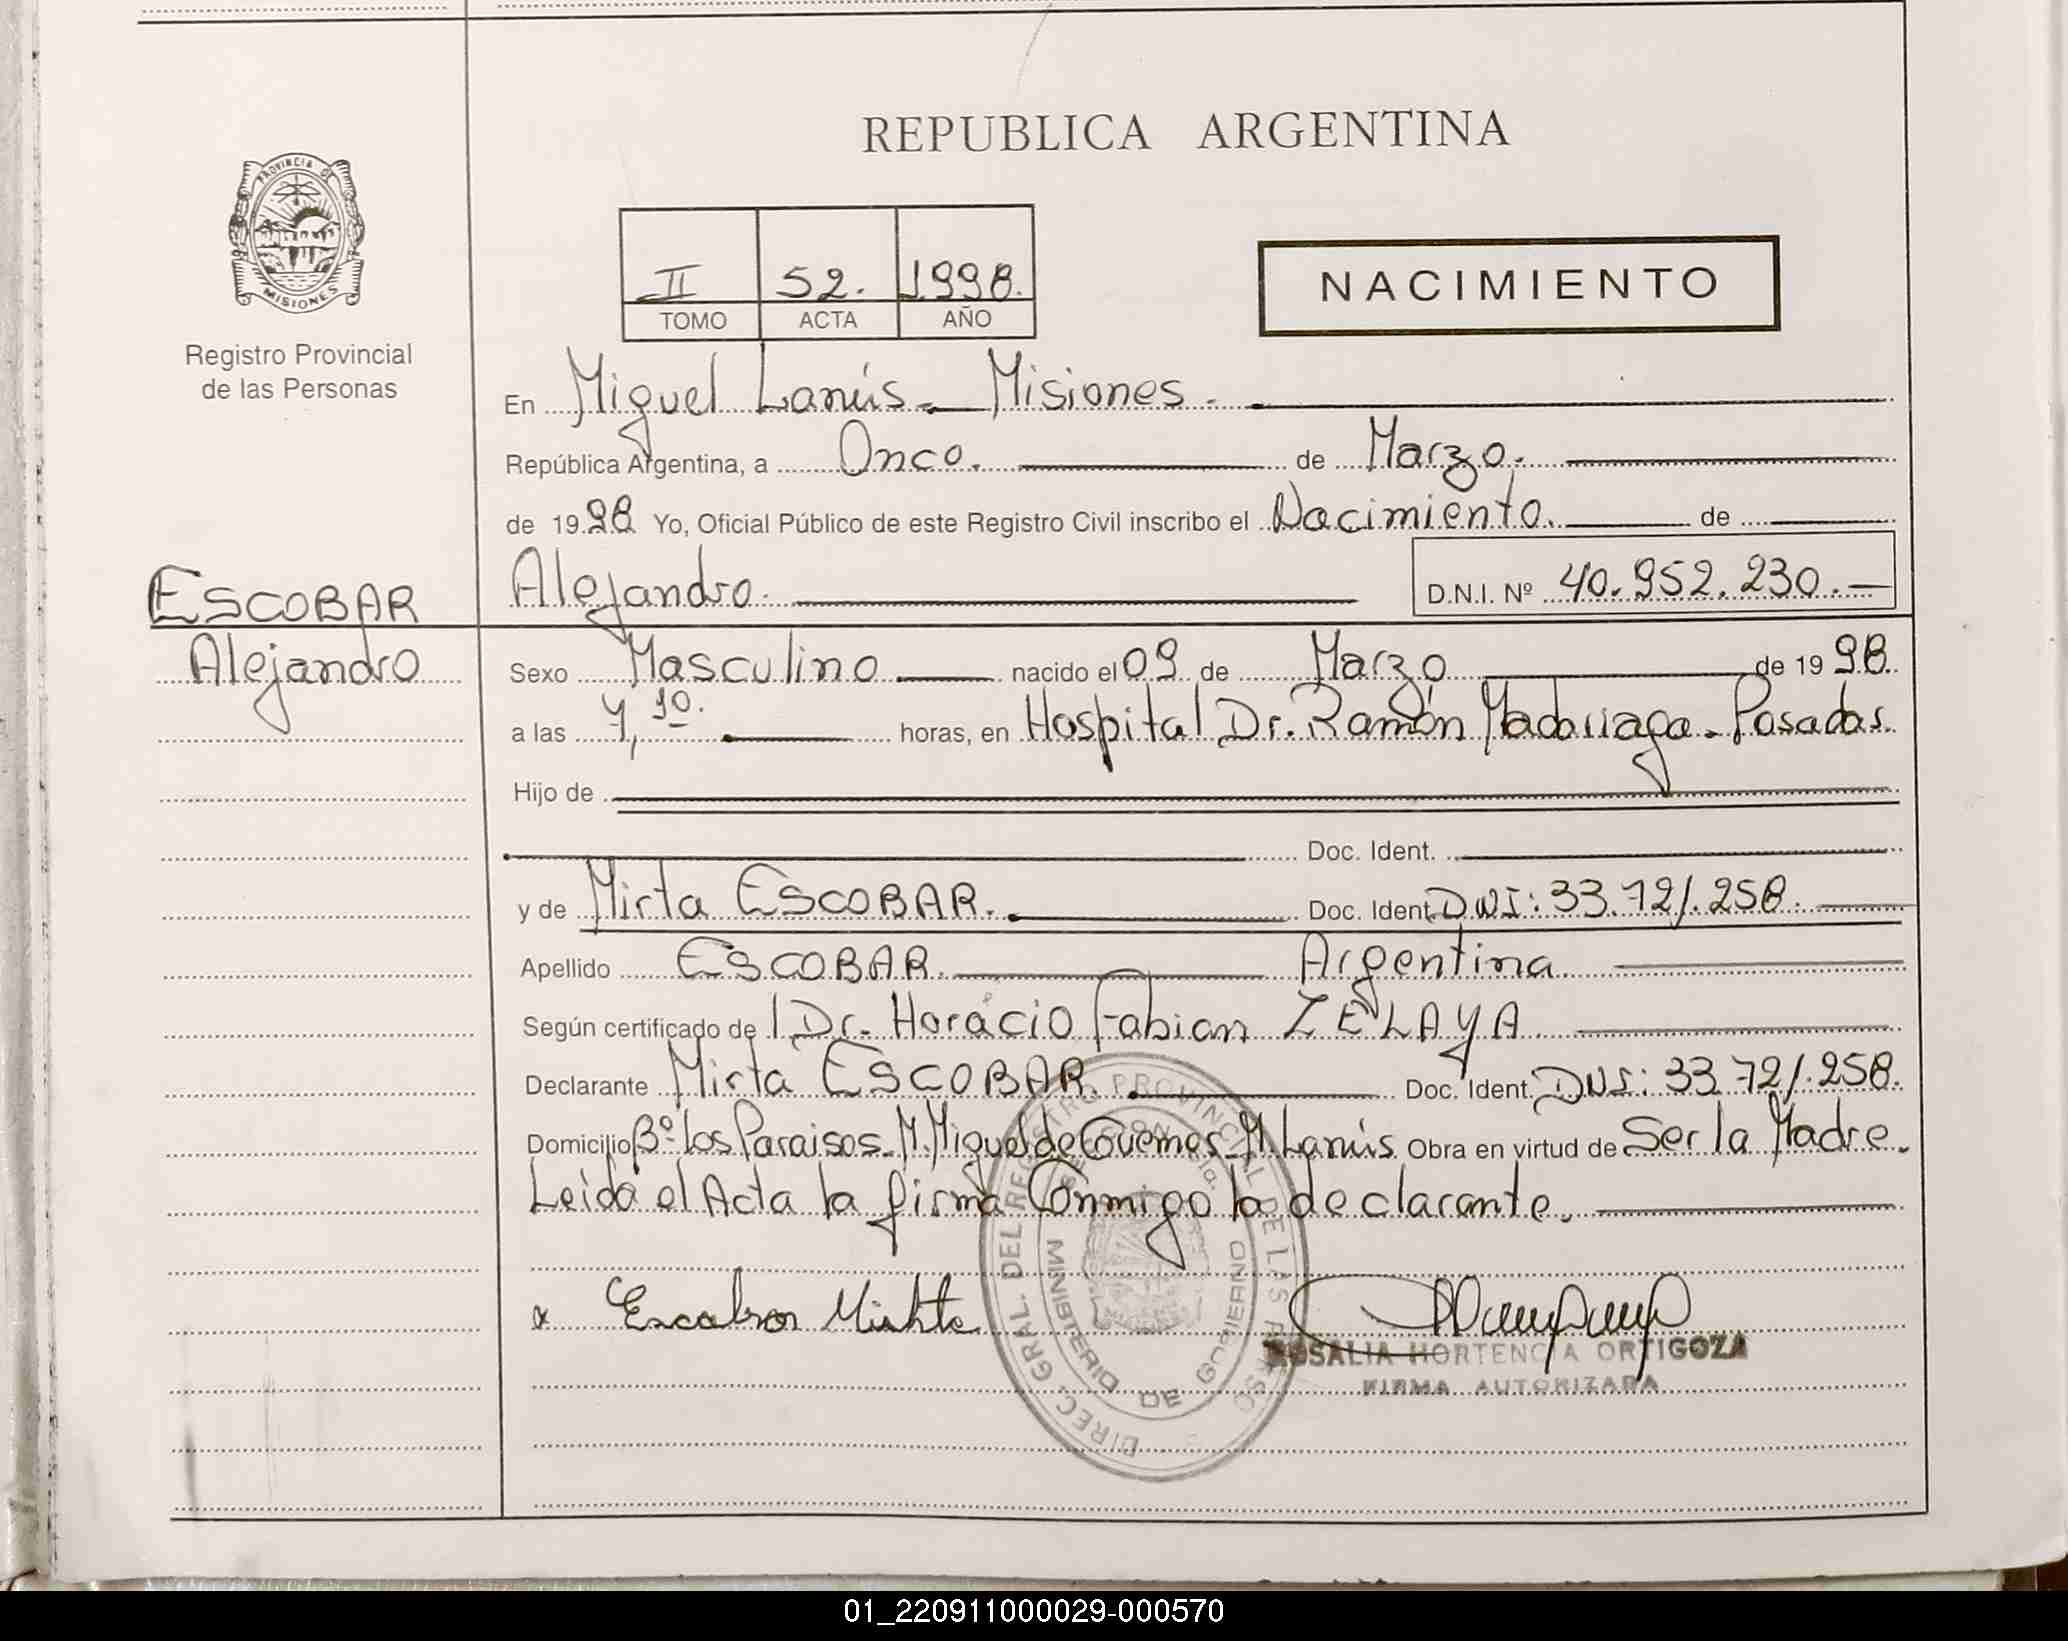 REPUBLICA ARGENTINA
PROVINCIA DE
MISIONES
Registro Provincial
de las Personas
II 52. 1998.
TOMO ACTA AÑO
NACIMIENTO
En Miguel Lanús - Misiones.
República Argentina, a Once. de Marzo.
de 1998 Yo, Oficial Público de este Registro Civil inscribo el Nacimiento. de
ESCOBAR
Alejandro
Alejandro. D.N.I. Nº 40.952.230.-
Sexo Masculino nacido el 09 de Marzo de 1998.
a las 4,10. horas, en Hospital Dr. Ramón Madariaga - Posadas.
Hijo de
Doc. Ident.
y de Mirta ESCOBAR. Doc. Ident. DNI: 33.721.258.
Apellido ESCOBAR. Argentina
Según certificado de Dr. Horacio Fabian ZELAYA
Declarante Mirta ESCOBAR. Doc. Ident. DNI: 33.721.258.
Domicilio Bº los Paraisos - M. Miguel de Guemes - M. Lanús Obra en virtud de Ser la Madre.
Leido el Acta la firma Conmigo la declarante.
x Escobar
ROSALIA HORTENCIA ORTIGOZA
FIRMA AUTORIZADA
DIREC. GRAL. DEL REGISTRO PROVINCIAL DE LAS PERSO
MINISTERIO DE GOBIERNO
01_220911000029-000570